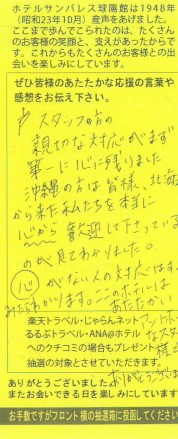 ホテルサンパレス球陽館は1948年
(昭和23年10月)産声をあげました。
ここまで歩んでこられたのは、たくさん
のお客様の笑顔と、支えがあったからで
す。これからもたくさんのお客様との出
会いを楽しみにしています。
ぜひ皆様のあたたかな応援の言葉や
感想をお伝え下さい。
スタッフの方の
親切な対応がまず
第一に心に残りました
沖縄の方は皆様、北海
から来た私たちを本当に
心から歓迎して下さっている
のが良くわかりました。
心がない人の対応はすぐ
みたらわかります。ここのホテルは
あたたかい
アットホー
楽天トラベル・じゃらんネット
るるぶトラベル・ANA@ホテル
へのクチコミの場合もプレゼント
抽選の対象とさせていただきます。
ありがとうございました。
またお会いできる日を楽しみにしております。
お手数ですがフロント横の抽選箱に投函してください